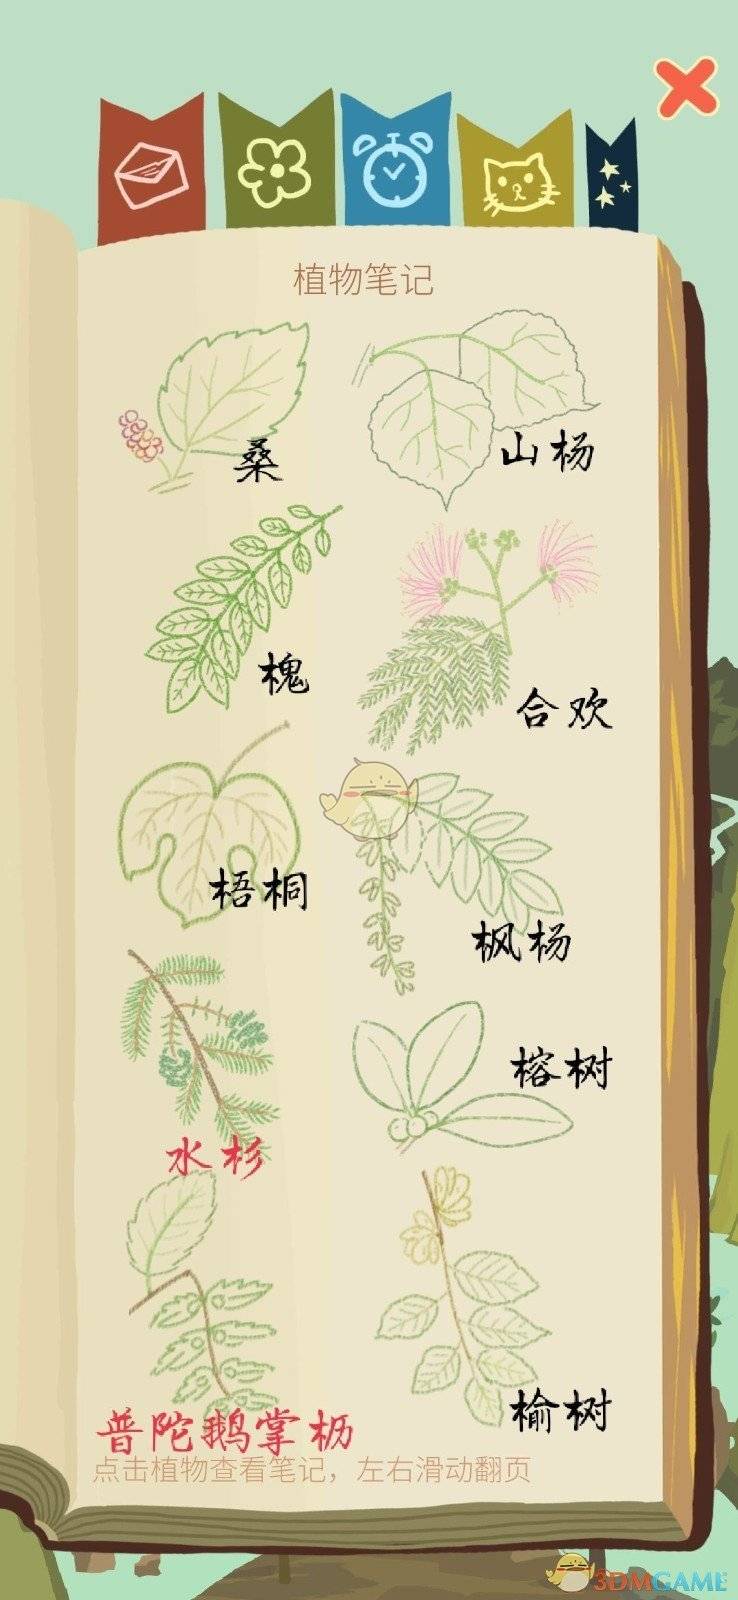 植物笔记
桑
山杨
槐
合欢
梧桐
枫杨
水杉
榕树
普陀鹅掌枥
榆树
点击植物查看笔记，左右滑动翻页
3DMGAME